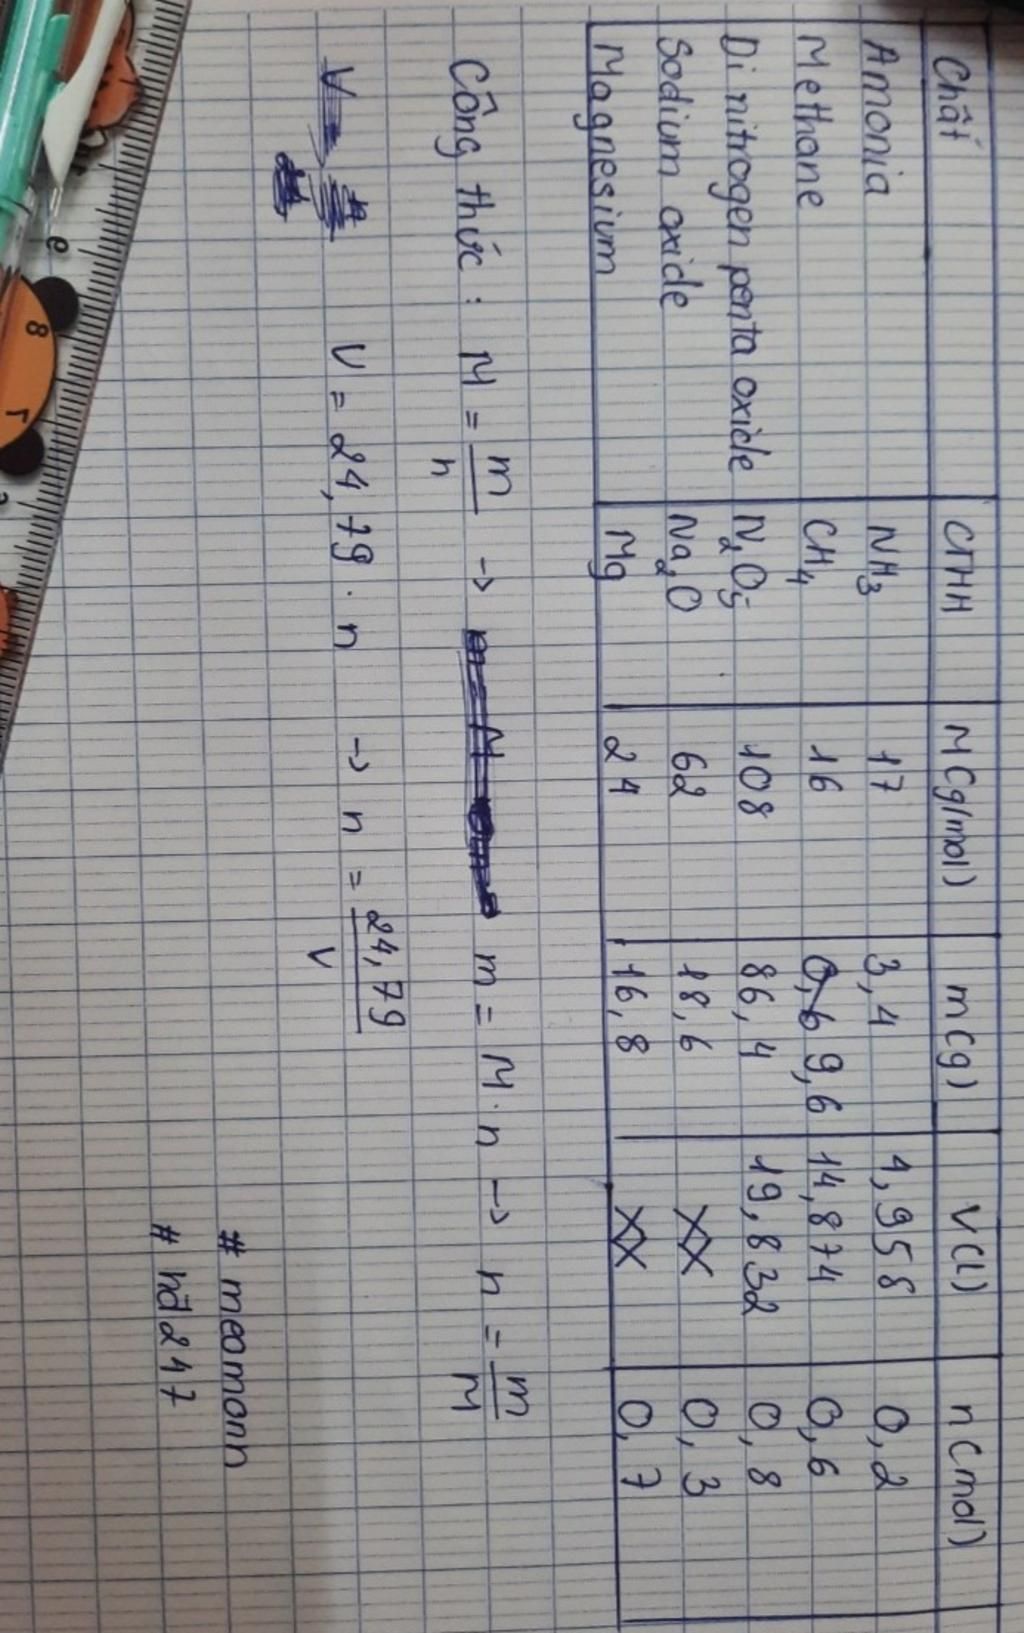 Chất CTHH M(g/mol) m(g) V(l) n(mol)
Amonia NH3 17 3,4 4,958 0,2
Methane CH4 16 9,6 14,874 0,6
Di nitrogen penta oxide N2O5 108 86,4 19,832 0,8
Sodium oxide Na2O 62 18,6 XX 0,3
Magnesium Mg 24 16,8 XX 0,7
Công thức : M = m/n -> m = M . n -> n = m/M
V = 24,79 . n -> n = 24,79/V
# meomann
# hđ247
8
7